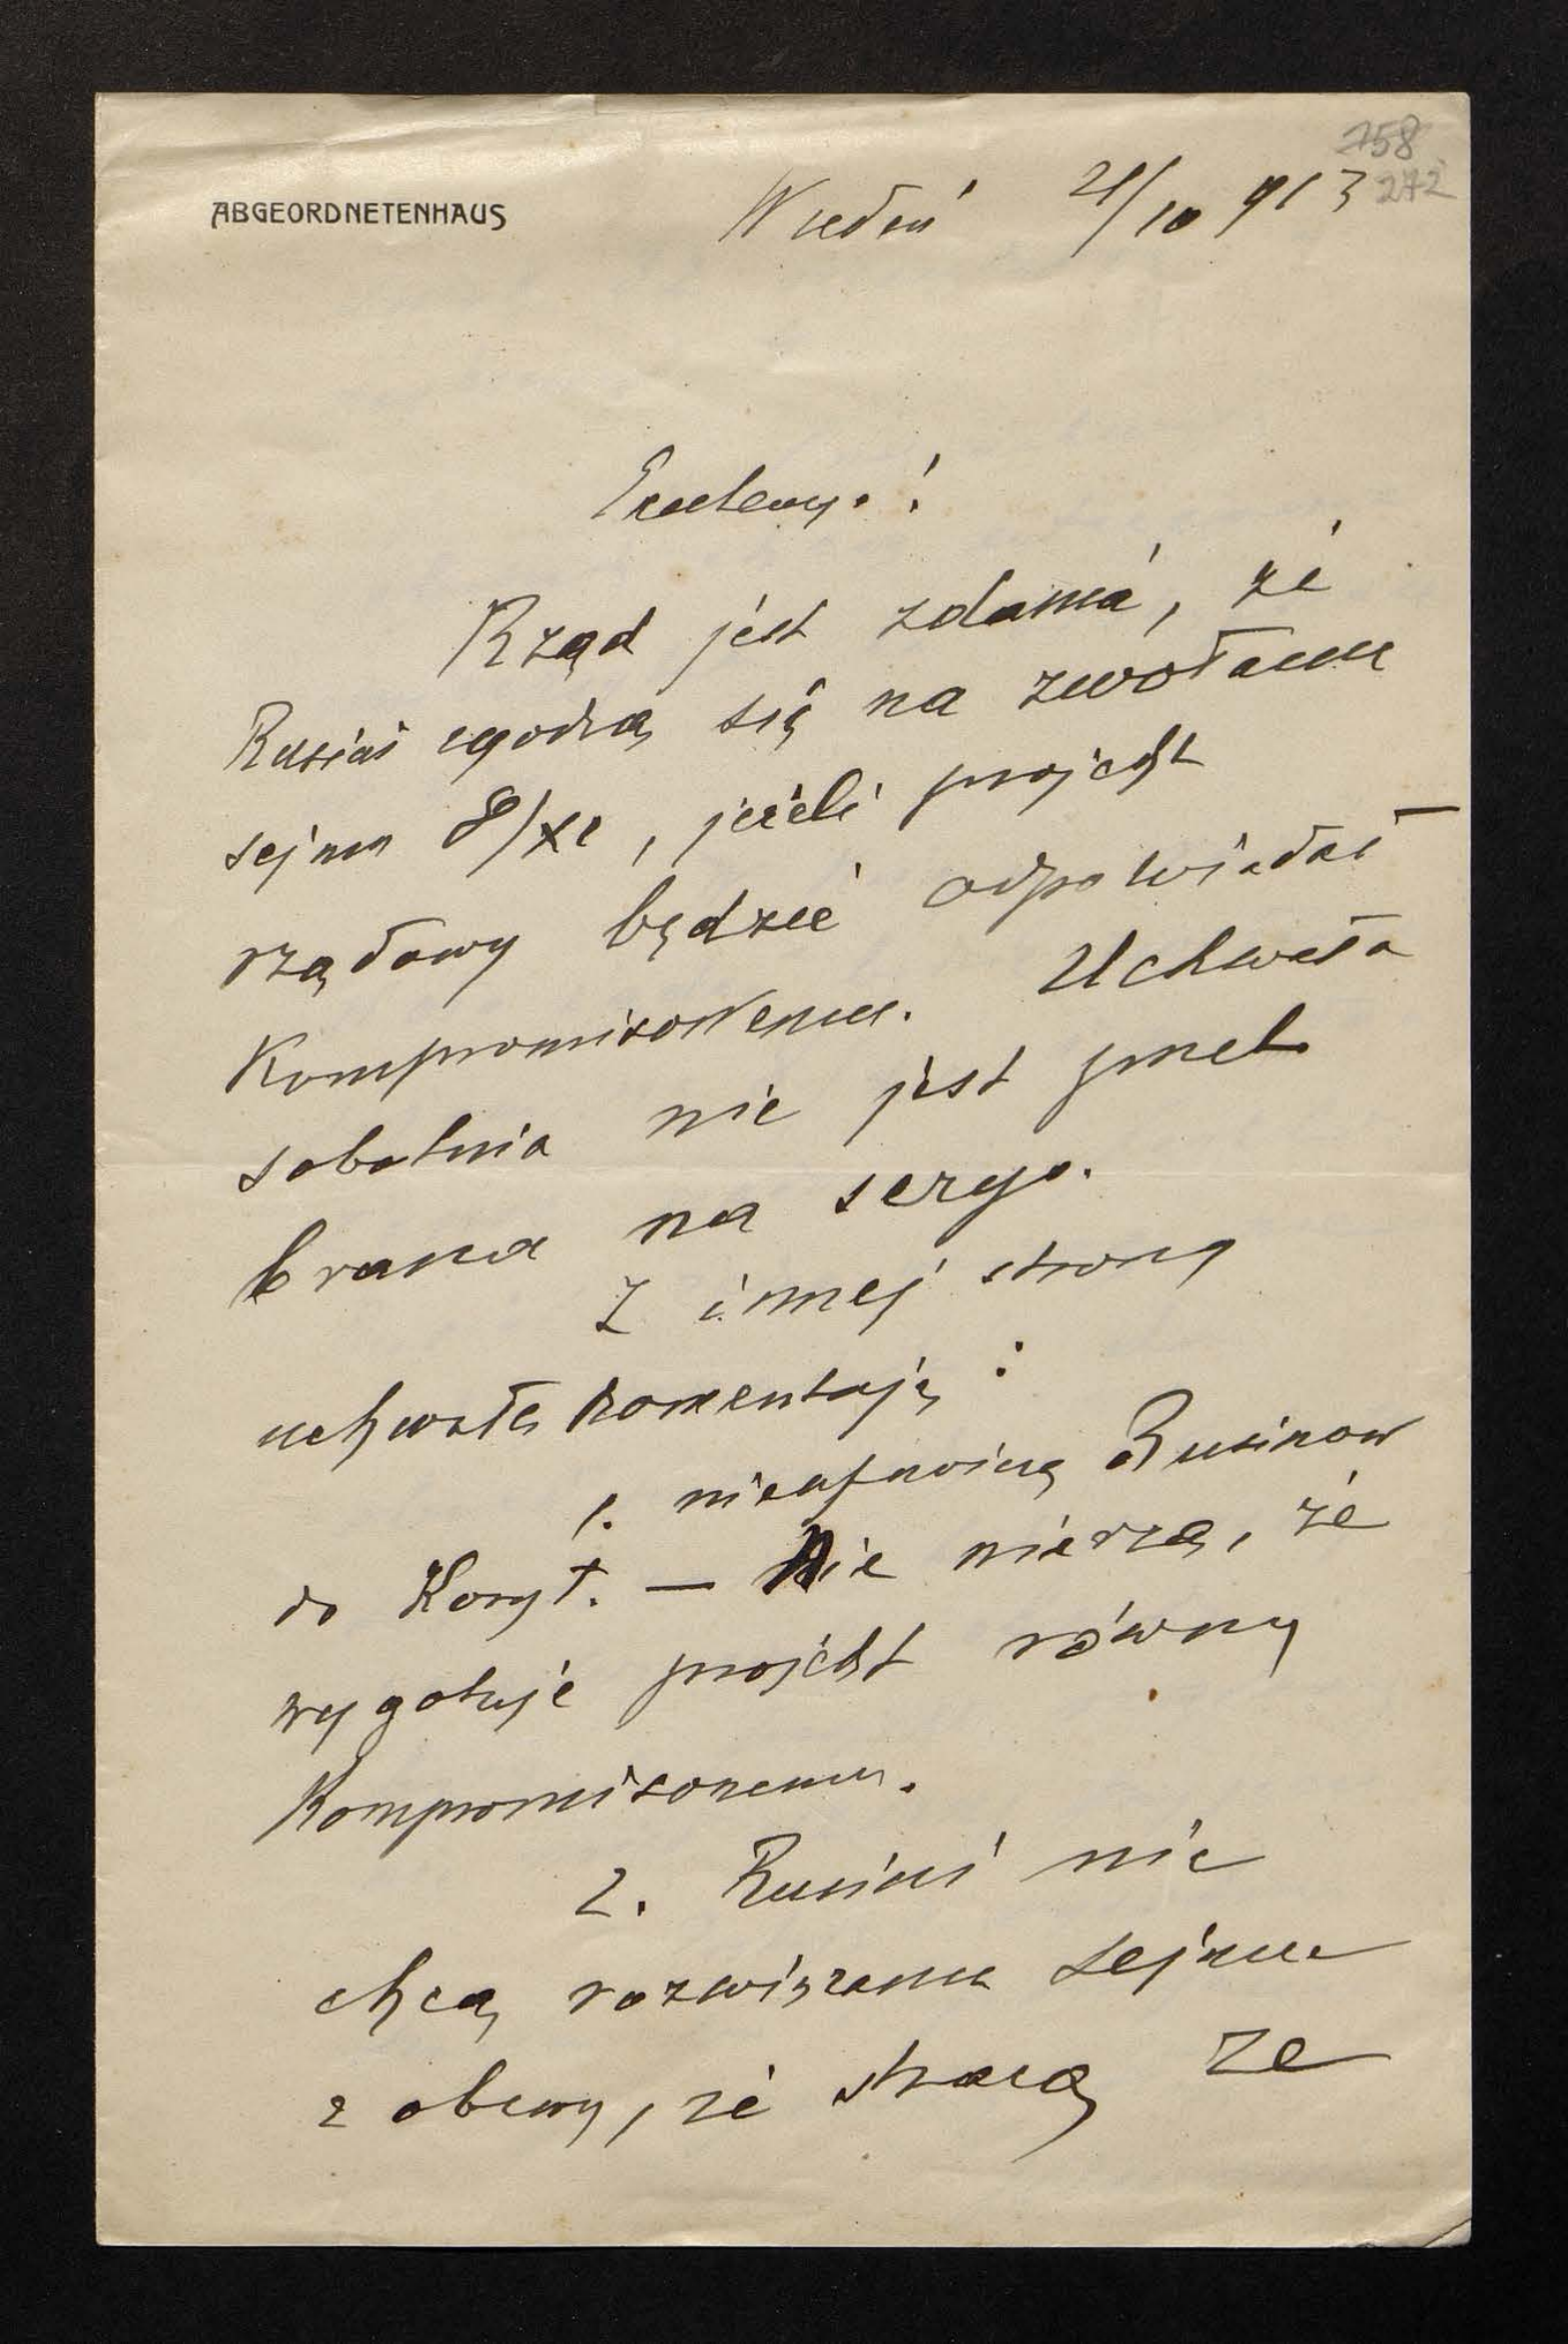 758
272
ABGEORDNETENHAUS
Wiedeń 21/10 913
Excelency.!
Rząd jest zdania, że
Rusini zgodzą się na zwołanie
sejmu 8/XI, jeżeli projekt
rządowy będzie odpowiadać
kompromisowemu. Uchwała
sobotnia nie jest
brana na seryo.
Z innej strony
uchwałę komentują:
1. nieufnością Rusinow
do Koryt. — Nie wierzą, że
wygotuje projekt równy
kompromisowemu.
2. Rusini nie
chcą rozwiązania sejmu
z obawy, że stracą ze